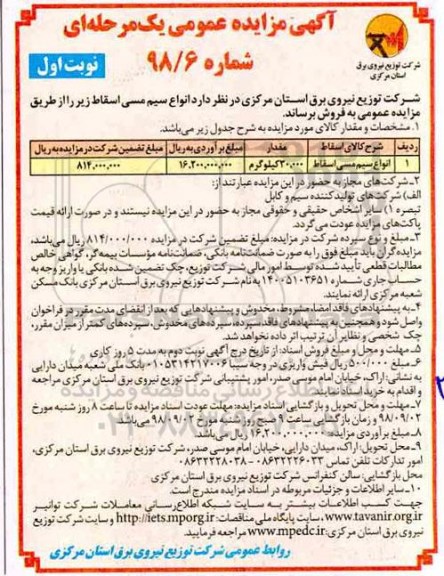 آگهی مزایده عمومی یک مرحله‌ای
شماره ۹۸/۶
نوبت اول
شرکت توزیع نیروی برق
استان مرکزی
شرکت توزیع نیروی برق استان مرکزی در نظر دارد انواع سیم مسی اسقاط زیر را از طریق
مزایده عمومی به فروش برساند.
۱. مشخصات و مقدار کالای مورد مزایده به شرح جدول زیر می‌باشد.
ردیف شرح کالای اسقاط مقدار مبلغ برآوردی به ریال مبلغ تضمین شرکت در مزایده به ریال
۱ انواع سیم مسی اسقاط ۳۰،۰۰۰ کیلوگرم ۱۶،۲۰۰،۰۰۰،۰۰۰ ۸۱۴،۰۰۰،۰۰۰
۲- شرکت‌های مجاز به حضور در این مزایده عبارتند از:
الف) شرکت‌های تولیدکننده سیم و کابل
تبصره ۱) سایر اشخاص حقیقی و حقوقی مجاز به حضور در این مزایده نیستند و در صورت ارائه قیمت
پاکت‌های مزایده عودت می‌گردد.
۳- مبلغ و نوع سپرده شرکت در مزایده: مبلغ تضمین شرکت در مزایده ۸۱۴/۰۰۰/۰۰۰ ریال می‌باشد،
مزایده‌گران باید مبلغ فوق را به صورت ضمانت‌نامه بانکی، ضمانت‌نامه مؤسسات بیمه‌گر، گواهی خالص
مطالبات قطعی تأیید شده توسط امور مالی شرکت توزیع، چک تضمین شده بانکی یا واریز وجه به
حساب جاری شماره ۱۴۰۰۵۱۰۳۶۵۱ به نام شرکت توزیع نیروی برق استان مرکزی بانک مسکن
شعبه مرکزی ارائه نمایند.
۴- به پیشنهادهای فاقد امضا، مشروط، مخدوش و پیشنهادهایی که بعد از انقضای مدت مقرر در فراخوان
واصل شود و همچنین به پیشنهادهای فاقد سپرده، سپرده‌های مخدوش، سپرده‌های کمتر از میزان مقرر،
چک شخصی و نظایر آن ترتیب اثر داده نخواهد شد.
۵- مهلت و محل و مبلغ فروش اسناد: از تاریخ درج آگهی نوبت دوم به مدت ۵ روز کاری
۶- مبلغ ۵۰۰/۰۰۰ ریال فیش واریزی در وجه سیبا ۰۱۰۵۳۱۴۲۱۷۰۰۶ بانک ملی شعبه میدان دارایی
به نشانی: اراک، خیابان امام موسی صدر، امور پشتیبانی شرکت توزیع نیروی برق استان مرکزی مراجعه
و اقدام به خرید اسناد نمایند.
۷- مهلت و محل تحویل و بازگشایی اسناد مزایده: مهلت عودت اسناد مزایده تا ساعت ۸ روز شنبه مورخ
۹۸/۰۹/۰۲ و زمان بازگشایی ساعت ۹ صبح روز شنبه مورخ ۹۸/۰۹/۰۲ می‌باشد.
۸- مبلغ برآوردی مزایده: ۱۶،۲۰۰،۰۰۰،۰۰۰ ریال می‌باشد.
۹- محل تحویل: اراک، میدان دارایی، خیابان امام موسی صدر، شرکت توزیع نیروی برق استان مرکزی،
امور تدارکات تلفن تماس ۰۸۶۳۲۲۲۶۰۳۳ - ۰۸۶۳۲۲۲۸۰۳۸
محل بازگشایی: سالن کنفرانس شرکت توزیع نیروی برق استان مرکزی
۱۰- سایر اطلاعات و جزئیات مربوطه در اسناد مزایده مندرج است.
جهت کسب اطلاعات بیشتر به سایت شبکه اطلاع‌رسانی معاملات شرکت توانیر
www.tavanir.org.ir، سایت پایگاه ملی مناقصات: http://iets.mporg.ir و سایت شرکت توزیع
نیروی برق استان مرکزی: www.mpedc.ir مراجعه فرمایید.
روابط عمومی شرکت توزیع نیروی برق استان مرکزی